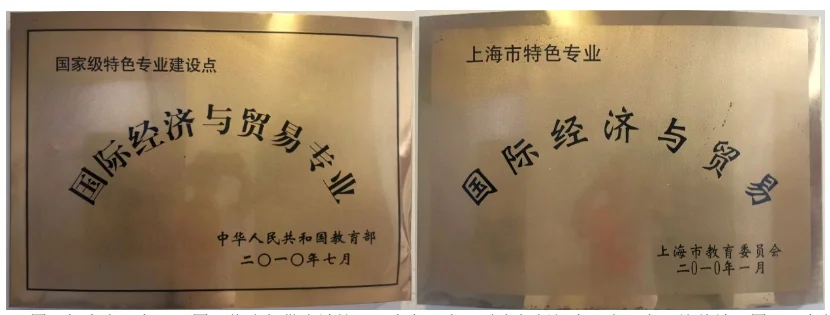 国家级特色专业建设点
国际经济与贸易专业
中华人民共和国教育部
二〇一〇年七月
上海市特色专业
国际经济与贸易
上海市教育委员会
二〇一〇年一月